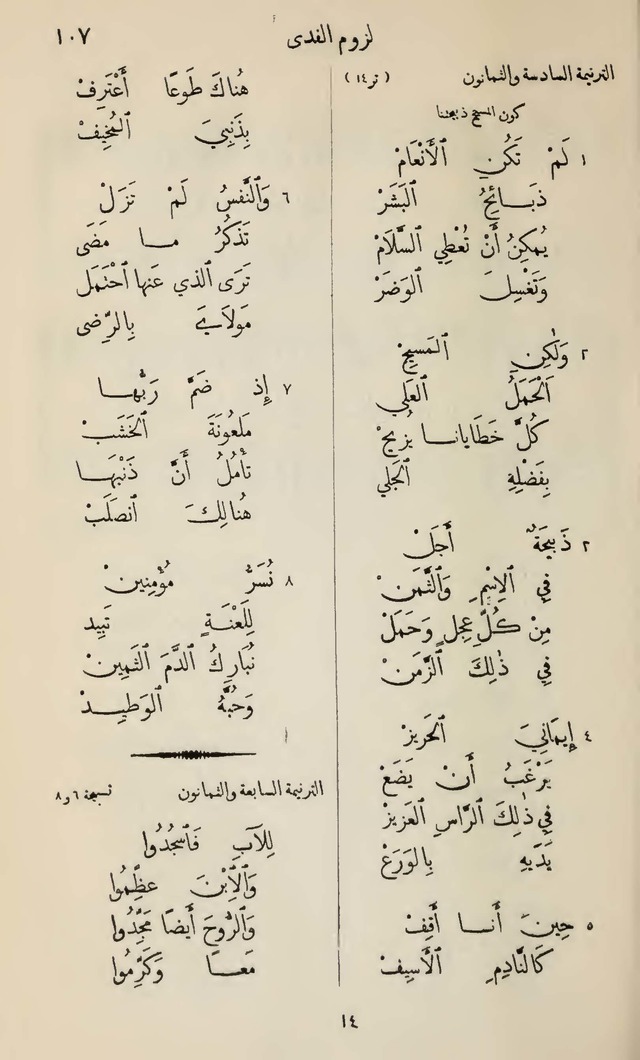 لزوم الفدى
١٠٧
الترنيمة السادسة والثمانون (تر١٤)
كون المسيح ذبيحتنا
١ لَمْ تَكُنِ ٱلْأَنْعَامْ
ذَبَائِحُ ٱلبَشَرْ
يُمكِنُ أَنْ تُعْطِي ٱلسَّلَامْ
وَتَغْسِلَ ٱلوَضَرْ
٢ وَلٰكِنِ ٱلمَسِيحْ
اَلْحَمَلُ ٱلعَلِي
كُلَّ خَطَايانا يُزِيحْ
بِفَضْلِهِ ٱلجَلِي
٣ ذَبِيحَةٌ أَجَلْ
فِي ٱلِاسْمِ وَٱلثَّمَنْ
مِنْ كُلِّ عِجلٍ وَحَمَلْ
فِي ذٰلِكَ ٱلزَّمَنْ
٤ إِيمَانِيَ ٱلحَرِيزْ
يَرْغَبُ أَنْ يَضَعْ
فِي ذٰلِكَ ٱلرَّاسِ ٱلعَزِيزْ
يَدَيهِ بِالوَرَعْ
٥ حِينَ أَنا أَقِفْ
كَالنَّادِمِ ٱلأَسِيفْ
هُناكَ طَوعًا أَعْتَرِفْ
بِذَنْبِيَ ٱلمُخِيفْ
٦ وَٱلنَّفْسُ لَمْ تَزَلْ
تَذكُرُ ما مَضَى
تَرَى ٱلذي عَنها ٱحْتَمَل
مَولَايَ بِالرِّضى
٧ إِذ ضَمَّ رَبُّها
مَلعُونَةَ ٱلخَشَبْ
تَأْمُلُ أَنَّ ذَنْبَها
هُنالِكَ ٱنصَلَبْ
٨ نُسَرُّ مُؤْمِنِينْ
لِلَعْنَةٍ تَبِيد
نُبَارِكُ ٱلدَّمَ ٱلثَّمِينْ
وَحُبَّهُ ٱلوَطِيدْ
الترنيمة السابعة والثمانون تسبحة ٦ و٨
لِلآبِ فَٱسْجُدُوا
وَٱلِٱبْنَ عظِّمُوا
وَٱلرُّوحَ أَيضًا مَجِّدُوا
مَعًا وَكَرِّمُوا
١٤